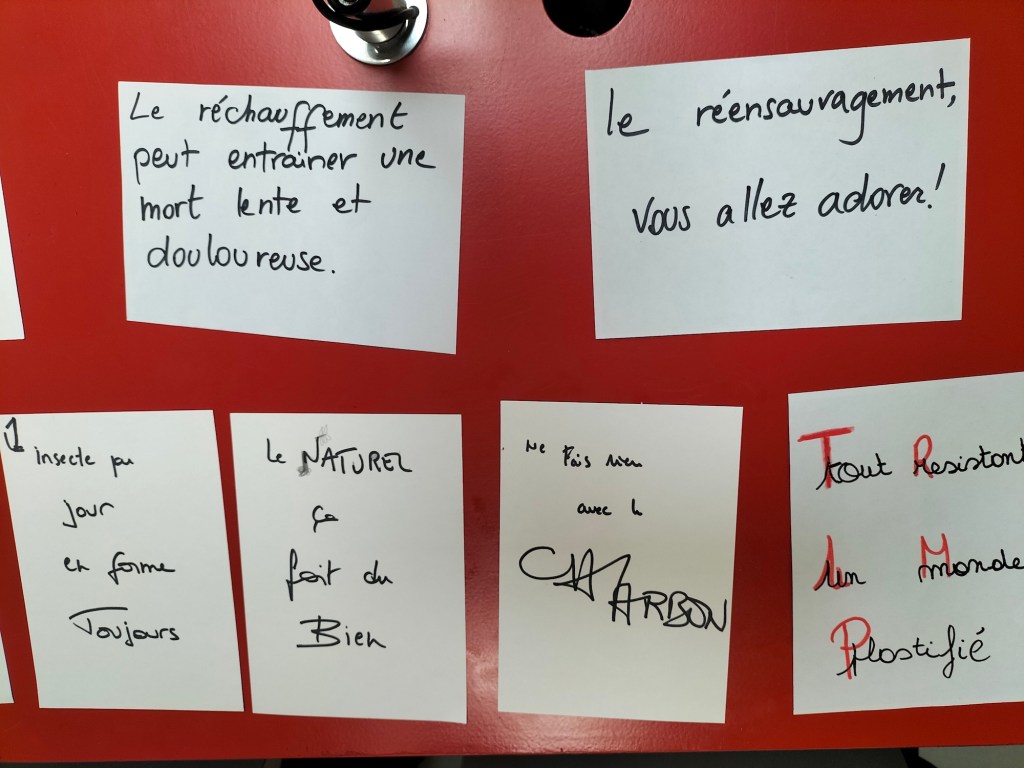 Le réchauffement
peut entraîner une
mort lente et
douloureuse.
le réensauvagement,
vous allez adorer!
1 insecte par
jour
en forme
Toujours
Le NATUREL
ça
fait du
Bien
Ne Fais rien
avec le
CHARBON
Tout Resistant
Un Monde
Plastifié